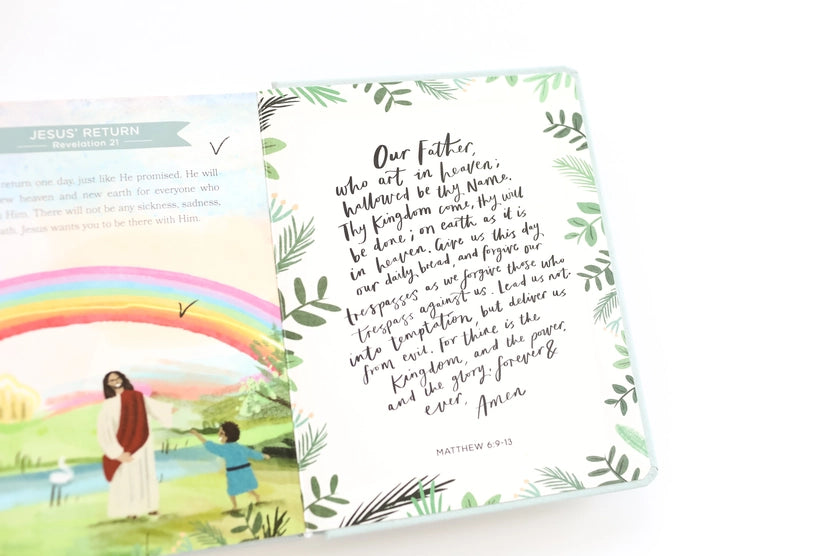 JESUS' RETURN
Revelation 21
return one day, just like He promised. He will
new heaven and new earth for everyone who
Him. There will not be any sickness, sadness,
Jesus wants you to be there with Him.
Our Father,
who art in heaven;
hallowed be thy Name.
Thy Kingdom come, thy will
be done; on earth as it is
in heaven. Give us this day
our daily, bread, and forgive our
trespasses as we forgive those who
trespass against us. Lead us not
into temptation but deliver us
from evil. For thine is the
Kingdom, and the power,
and the glory. forever &
ever, Amen
MATTHEW 6:9-13